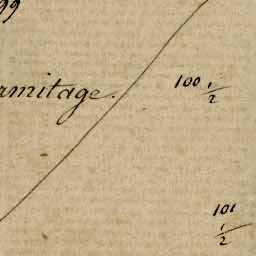 99
rmitage. 100 1/2
101 1/2